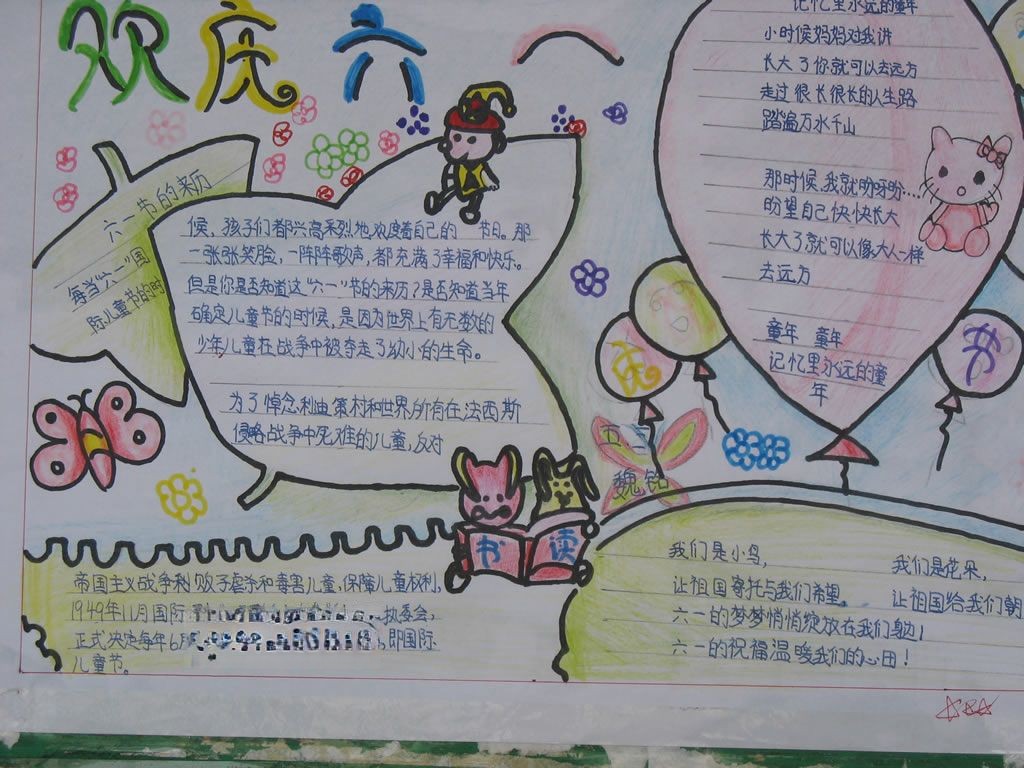 欢庆六一
六一节的来历
每当“六一”国
际儿童节的时
候，孩子们都兴高采烈地欢度着自己的 节日。那
一张张笑脸，一阵阵歌声，都充满了幸福和快乐。
但是你是否知道这“六一”节的来历？是否知道当年
确定儿童节的时候，是因为世界上有无数的
少年儿童在战争中被夺走了幼小的生命。
为了悼念利迪策村和世界所有在法西斯
侵略战争中死难的儿童，反对
帝国主义战争贩子虐杀和毒害儿童，保障儿童权利，
1949年11月国际
执委会，
正式决定每年6月
，即国际
儿童节。
书读
记忆里永远的童年
小时候妈妈对我讲
长大了你就可以去远方
走过很长很长的人生路
踏遍万水千山
那时候，我就盼呀盼…
盼望自己快快长大
长大了就可以像大人一样
去远方
童年 童年
记忆里永远的童
年
庆
节
五三
魏铭
我们是小鸟，
让祖国寄托与我们希望。
我们是花朵，
让祖国给我们朝
六一的梦梦悄悄绽放在我们身边！
六一的祝福温暖我们的心田！